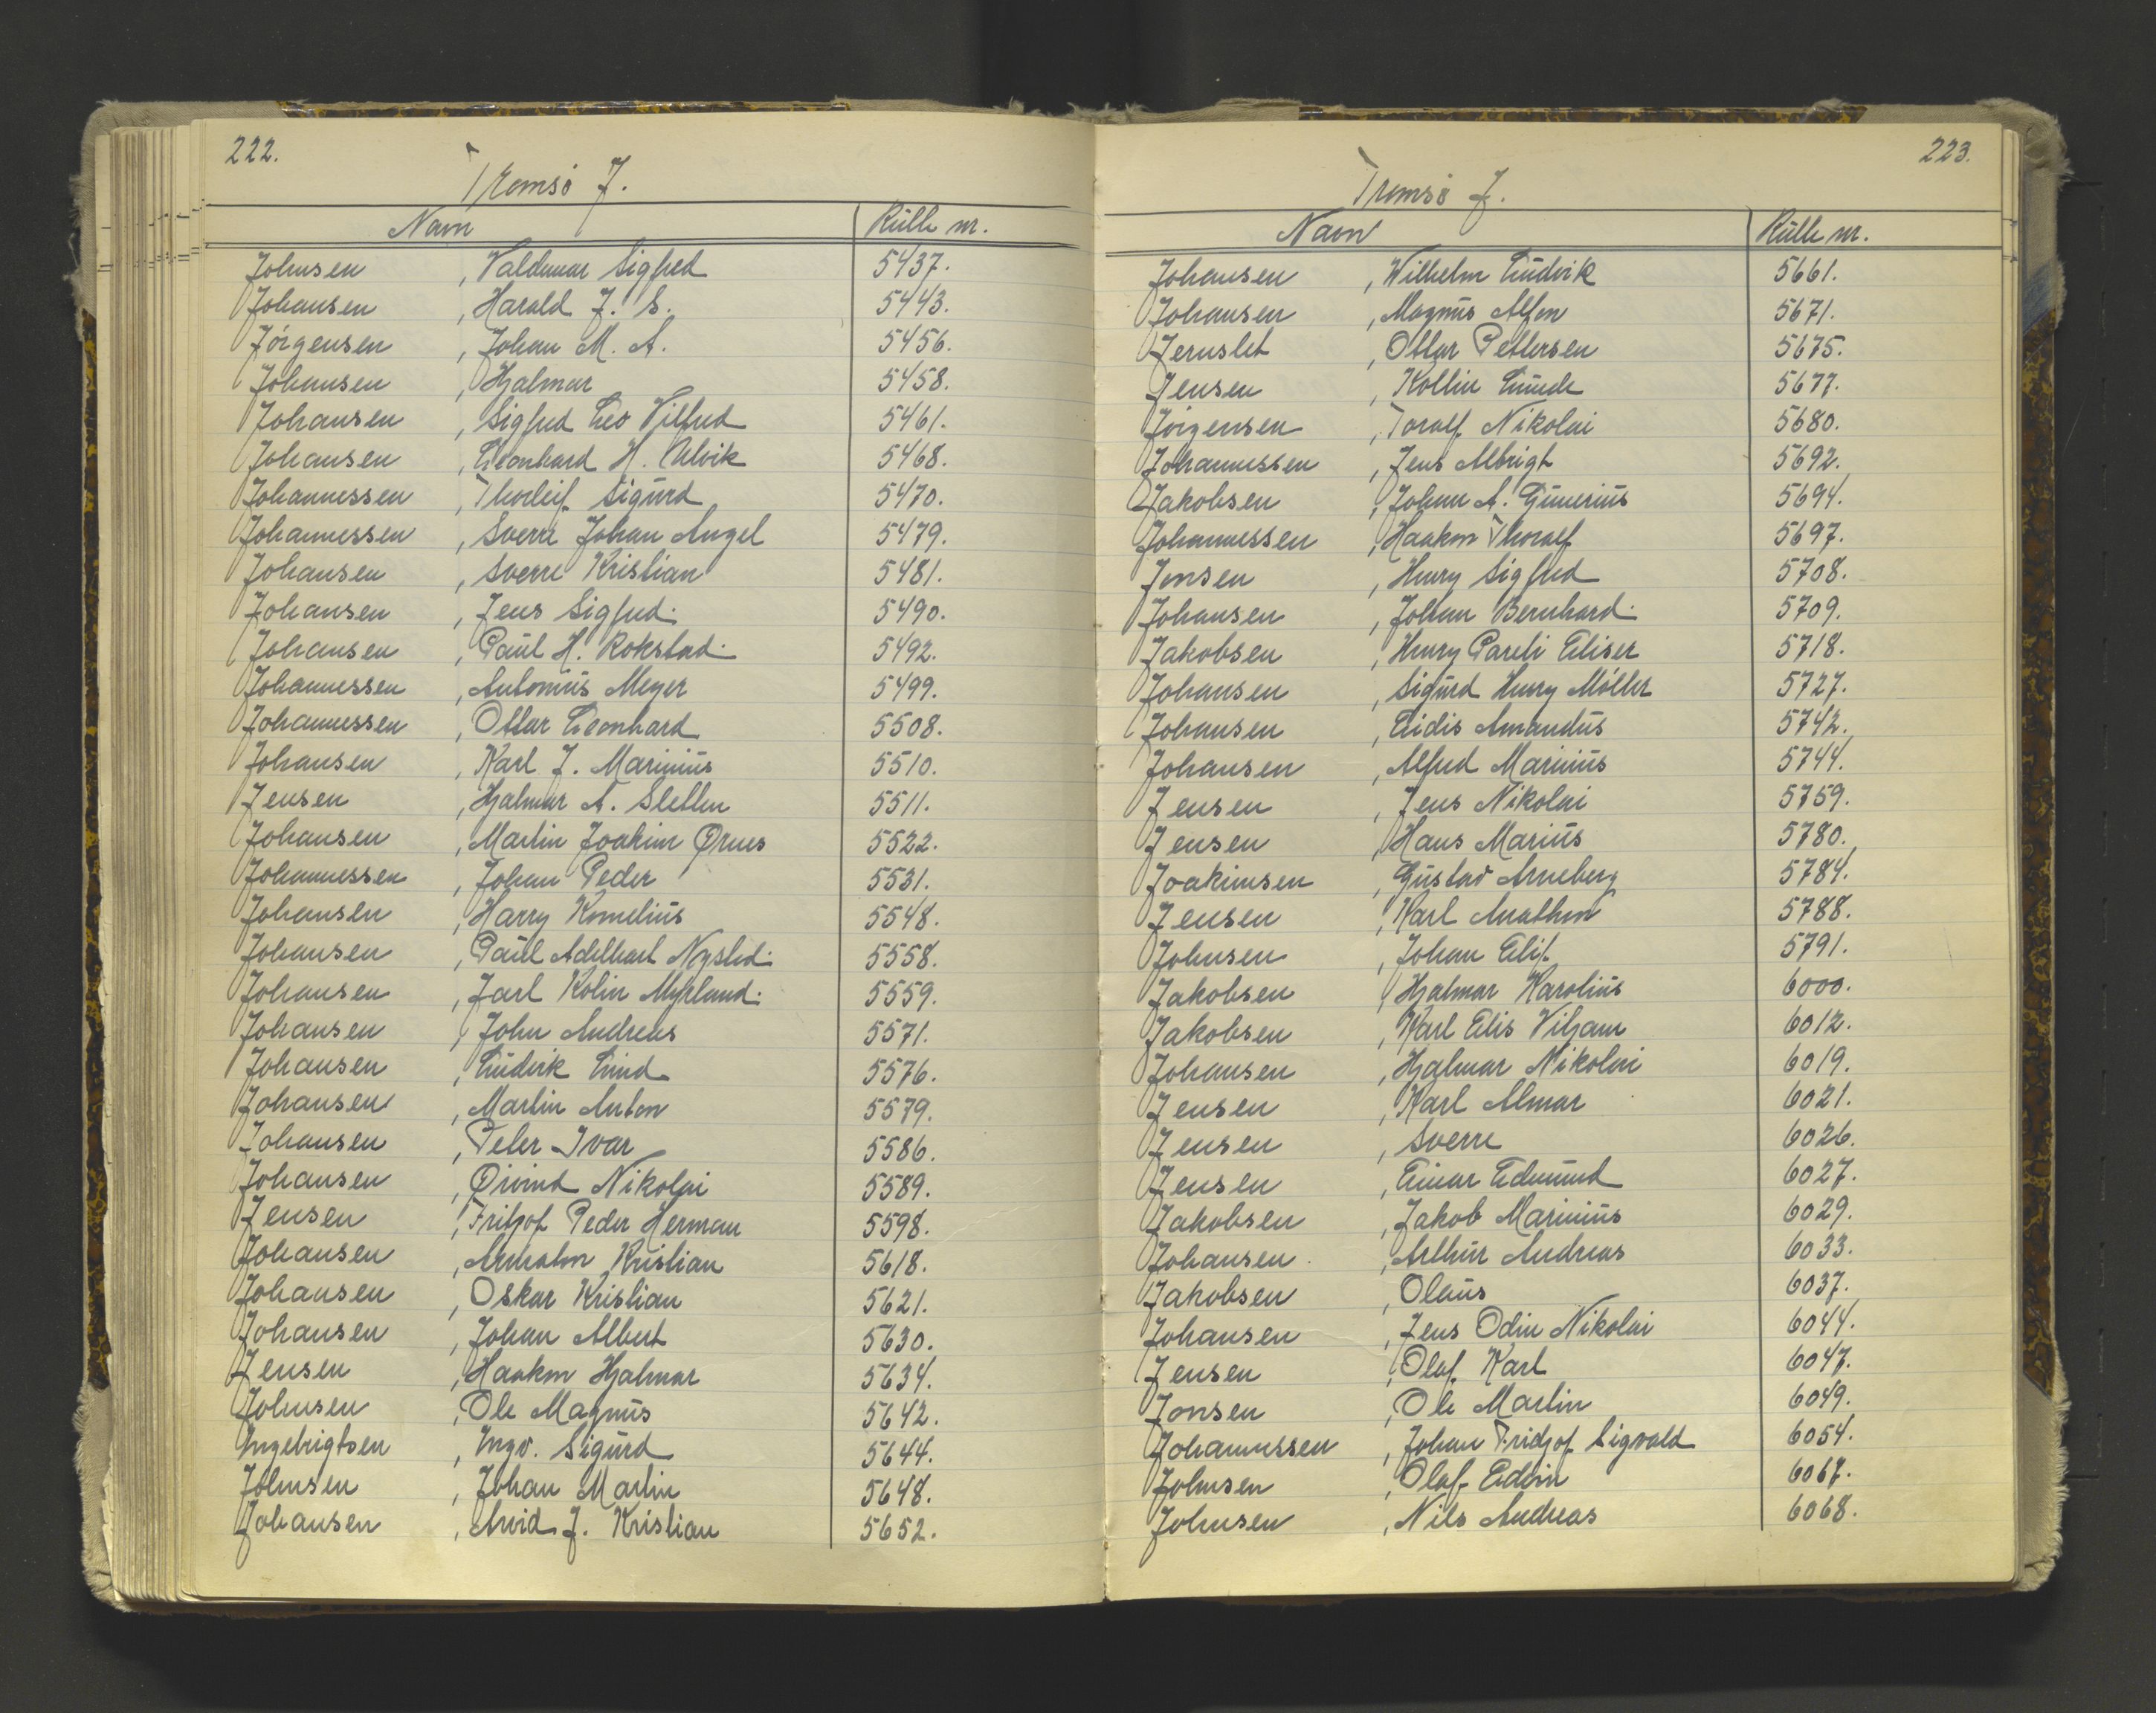 222.
Tromsø J.
Navn Rulle nr.
Johnsen , Valdemar Sigfred 5437.
Johansen , Harald J. S. 5443.
Jörgensen , Johan M. A. 5456.
Johansen , Hjalmar 5458.
Johansen , Sigfred Leo Vilfred 5461.
Johansen , Leonhard H. Ulvik 5468.
Johannessen , Thorleif Sigurd 5470.
Johannessen , Sverre Johan Angel 5479.
Johansen , Sverre Kristian 5481.
Johansen , Jens Sigfred. 5490.
Johansen , Paul H. Rokstad. 5492.
Johannessen , Antonius Meyer 5499.
Johannessen , Ottar Leonhard 5508.
Johansen , Karl J. Marinius 5510.
Jensen , Hjalmar A. Sletten 5511.
Johansen , Martin Joakim Ørnes 5522.
Johannessen , Johan Peder 5531.
Johansen , Harry Kornelius 5548.
Johansen , Paul Adelhart 5558.
Johansen , Jarl Kolin Myrland. 5559.
Johansen , John Andreas 5571.
Johansen , Ludvik Lund 5576.
Johansen , Martin Anton 5579.
Johansen , Peter Ivar 5586.
Johansen , Øivind Nikolai 5589.
Jensen , Fritjof Peder Herman 5598.
Johansen , Kristian 5618.
Johansen , Oskar Kristian 5621.
Johansen , Johan Albert 5630.
Jensen , Haakon Hjalmar 5634.
Johnsen , Ole Magnus 5642.
Ingebrigtsen , Ingv. Sigurd 5644.
Johnsen , Johan Martin 5648.
Johansen , Arvid J. Kristian 5652.
223.
Tromsø J.
Navn Rulle nr.
Johansen , Wilhelm Ludvik 5661.
Johansen , Magnus Alfon 5671.
Jernslet , Ottar Pettersen 5675.
Jensen , Kollin Lunde 5677.
Jörgensen , Toralf Nikolai 5680.
Johannessen , Jens Albrigt 5692.
Jakobsen , Johan A. Gunerius 5694.
Johannessen , Haakon Thoralf 5697.
Jonsen , Henry Sigfred 5708.
Johansen , Johan Bernhard. 5709.
Jakobsen , Henry Pareli Eliser 5718.
Johansen , Sigurd Henry Möller 5727.
Johansen , Eidis Amandus 5742.
Johansen , Alfred Marinius 5744.
Jensen , Jens Nikolai 5759.
Jensen , Hans Marius 5780.
Joakimsen , Gustav Arneberg 5784.
Jensen , Karl Anathon 5788.
Johnsen , Johan Elif 5791.
Jakobsen , Hjalmar Karolius 6000.
Jakobsen , Karl Elis Viljam 6012.
Johansen , Hjalmar Nikolai 6019.
Jensen , Karl Almar 6021.
Jensen , Sverre 6026.
Jensen , Einar Edmund 6027.
Jakobsen , Jakob Marinius 6029.
Johansen , Arthur Andreas 6033.
Jakobsen , Olaus 6037.
Johansen , Jens Odin Nikolai 6044.
Jensen , Olaf Karl 6047.
Jonsen , Ole Martin 6049.
Johannessen , Johan Fridjof Sigvald 6054.
Johnsen , Olaf Edvin 6067.
Johnsen , Nils Andreas 6068.